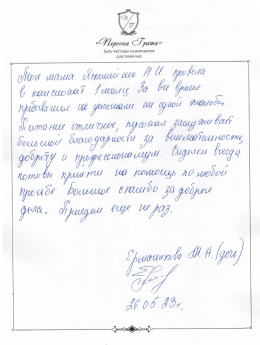 «Perotta Грата»
Сеть частных пансионатов
для пожилых
Моя мама Яшинкина Н.И. провела
в пансионат 1 месяц За все время
пребывания не услышали ни одной жалобы.
Питание отличное, персонал заслуживает
большой благодарности за внимательность,
доброту и профессионализм. Сиделки всегда
готовы прийти на помощь по любой
просьбе Большое спасибо за доброе
дела. Придем еще не раз.
Ермашкова М.А. (дочь)
26.05.23г.